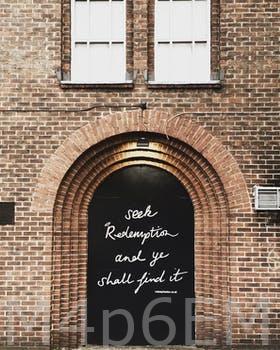 seek
Redemption
and ye
shall find it
M4p6EM